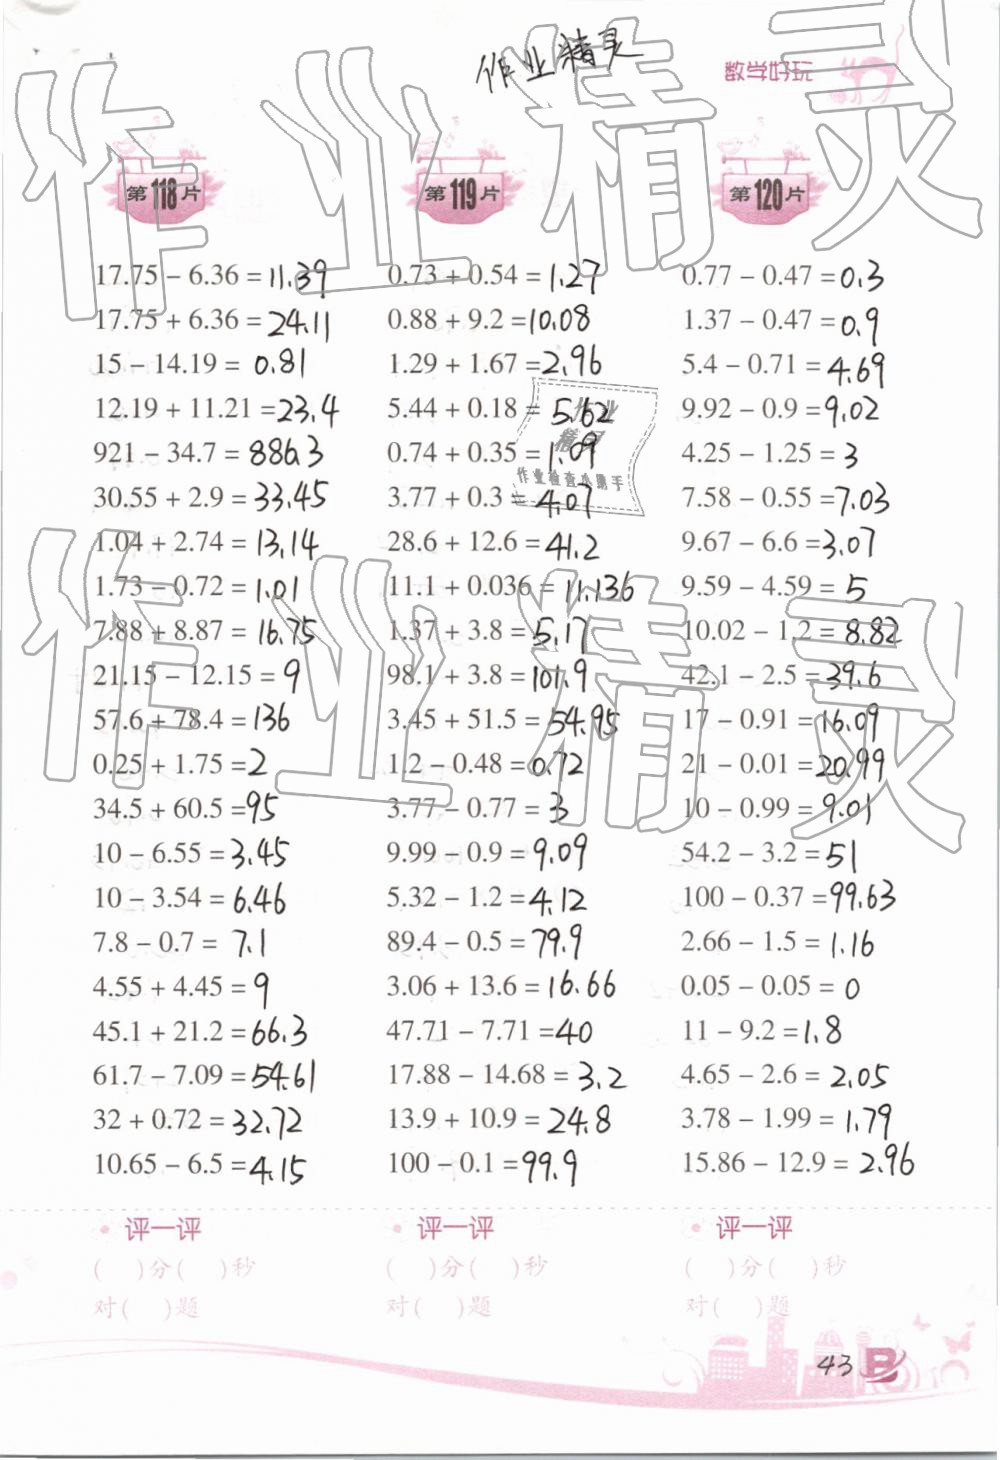 作业精灵
数学好玩
第118片
17.75 − 6.36 = 11.39
17.75 + 6.36 = 24.11
15 − 14.19 = 0.81
12.19 + 11.21 = 23.4
921 − 34.7 = 886.3
30.55 + 2.9 = 33.45
1.04 + 2.74 = 13.14
1.73 − 0.72 = 1.01
7.88 + 8.87 = 16.75
21.15 − 12.15 = 9
57.6 + 78.4 = 136
0.25 + 1.75 = 2
34.5 + 60.5 = 95
10 − 6.55 = 3.45
10 − 3.54 = 6.46
7.8 − 0.7 = 7.1
4.55 + 4.45 = 9
45.1 + 21.2 = 66.3
61.7 − 7.09 = 54.61
32 + 0.72 = 32.72
10.65 − 6.5 = 4.15
评一评
( )分( )秒
对( )题
第119片
0.73 + 0.54 = 1.27
0.88 + 9.2 = 10.08
1.29 + 1.67 = 2.96
5.44 + 0.18 = 5.62
0.74 + 0.35 = 1.09
3.77 + 0.3 = 4.07
28.6 + 12.6 = 41.2
11.1 + 0.036 = 11.136
1.37 + 3.8 = 5.17
98.1 + 3.8 = 101.9
3.45 + 51.5 = 54.95
1.2 − 0.48 = 0.72
3.77 − 0.77 = 3
9.99 − 0.9 = 9.09
5.32 − 1.2 = 4.12
89.4 − 0.5 = 79.9
3.06 + 13.6 = 16.66
47.71 − 7.71 = 40
17.88 − 14.68 = 3.2
13.9 + 10.9 = 24.8
100 − 0.1 = 99.9
评一评
( )分( )秒
对( )题
第120片
0.77 − 0.47 = 0.3
1.37 − 0.47 = 0.9
5.4 − 0.71 = 4.69
9.92 − 0.9 = 9.02
4.25 − 1.25 = 3
7.58 − 0.55 = 7.03
9.67 − 6.6 = 3.07
9.59 − 4.59 = 5
10.02 − 1.2 = 8.82
42.1 − 2.5 = 39.6
17 − 0.91 = 16.09
21 − 0.01 = 20.99
10 − 0.99 = 9.01
54.2 − 3.2 = 51
100 − 0.37 = 99.63
2.66 − 1.5 = 1.16
0.05 − 0.05 = 0
11 − 9.2 = 1.8
4.65 − 2.6 = 2.05
3.78 − 1.99 = 1.79
15.86 − 12.9 = 2.96
评一评
( )分( )秒
对( )题
作业精灵
作业精灵
作业
精灵
作业检查小助手
43